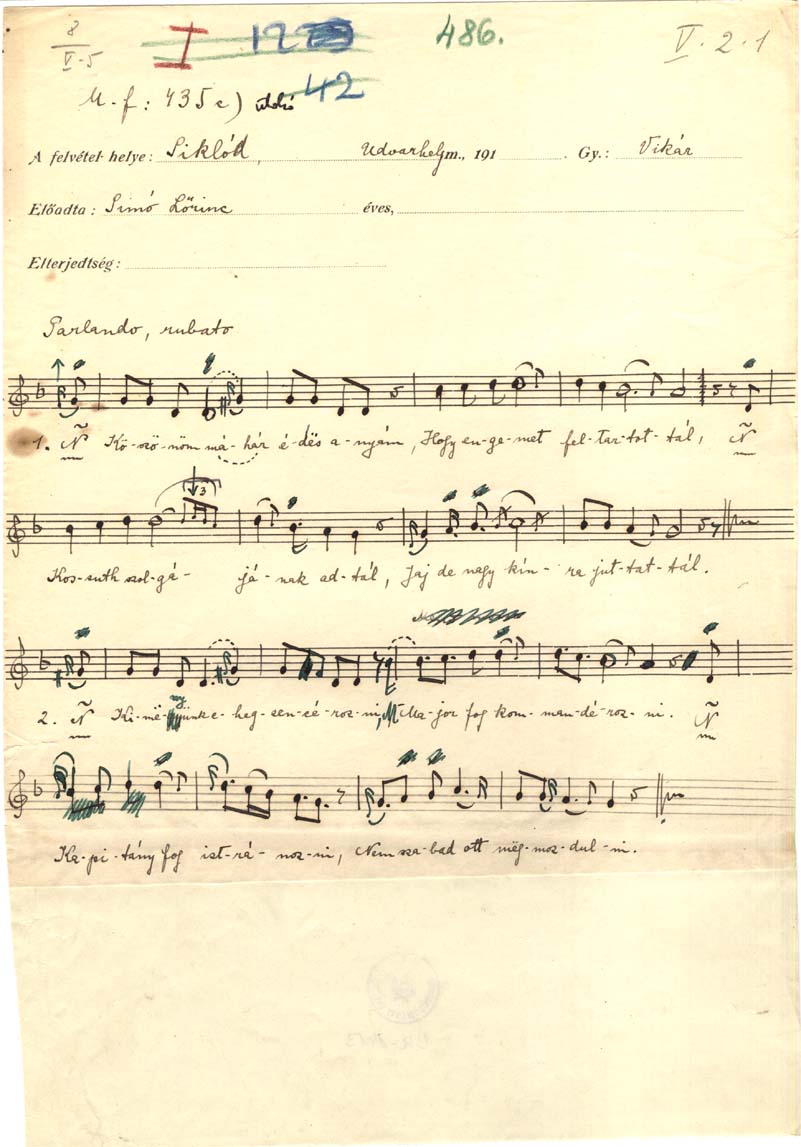 8 I 486. V. 2. 1
V-5
M. f.: 435 c) utolsó 42
A felvétel helye: Siklód, Udvarhelym., 191 Gy.: Vikár
Előadta: Simó Lőrinc éves,
Elterjedtség:
Parlando, rubato
3
1. Ñ Kö-szö-nöm má-hár é-dës a-nyám, Hogy en-ge-met fel-tar-tot-tál, Ñ
3
Kos-suth szol-gá-já-nak ad-tál, Jaj de nagy kín-ra jut-tat-tál.
2. Ñ Ki-më- -heg-sen-sé-roz-ni, Ma-jor fog kom-man-dé-roz-ni. Ñ
Ka-pi-tány fog ist-rá-noz-ni, Nem sza-bad ott mëg-moz-dul-ni.